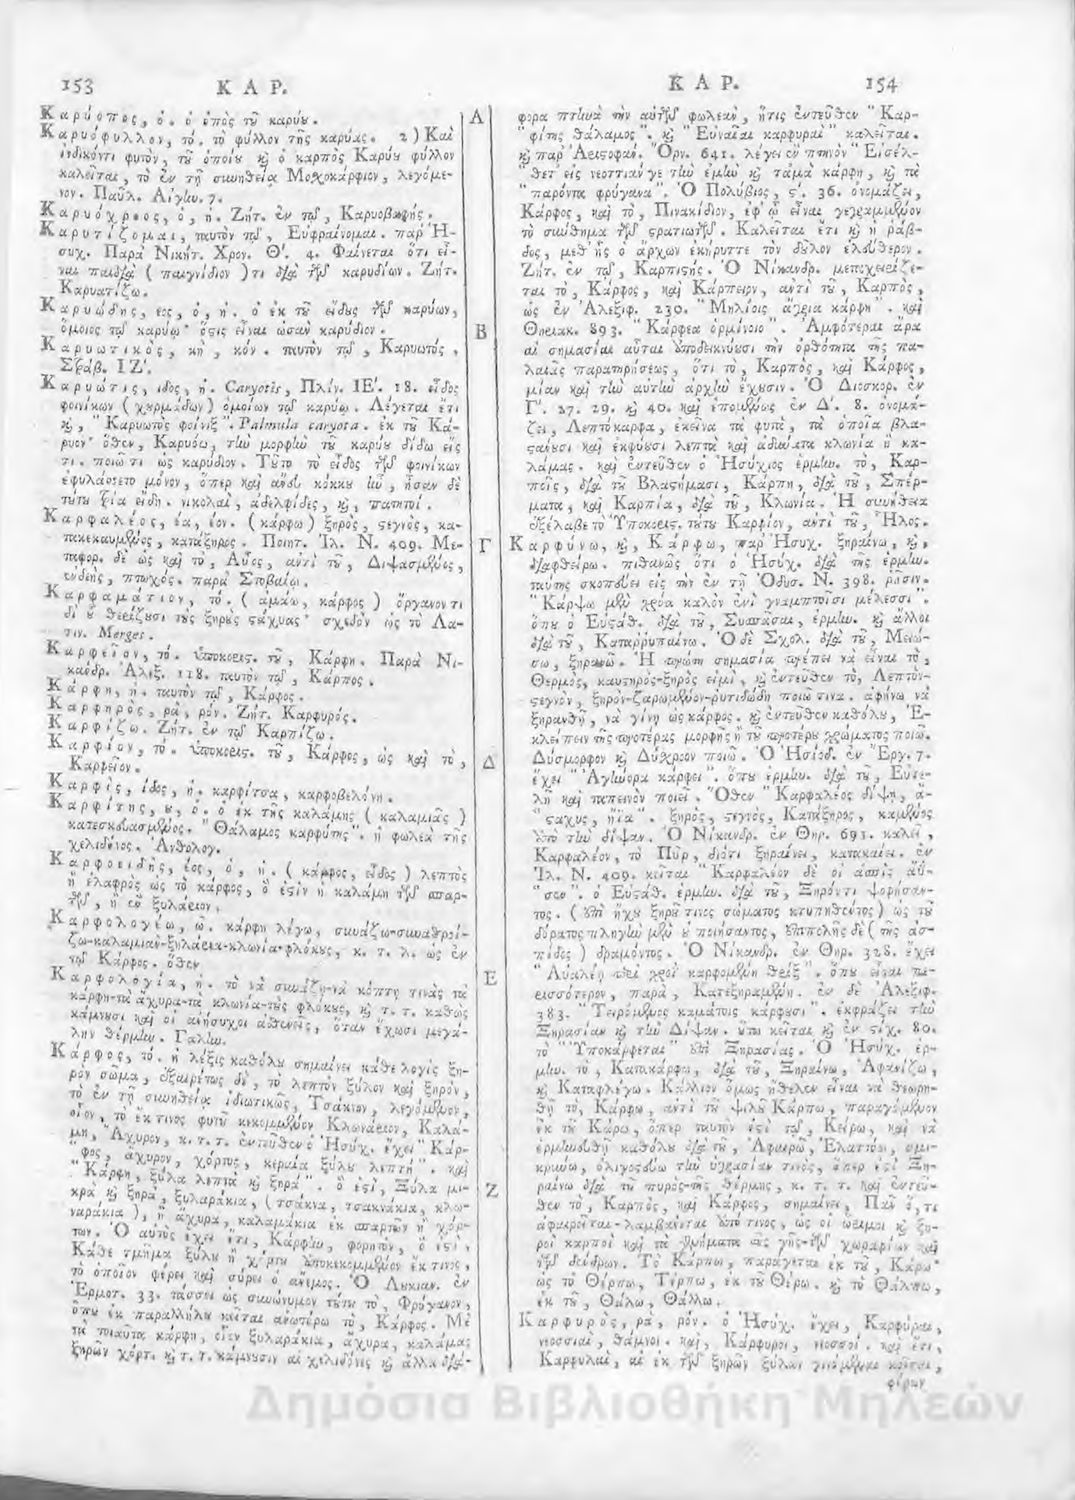 153 ΚΑΡ.
Καρύοπος, ὁ. ὁ ὀπὸς τοῦ καρύου.
Καρυόφυλλον, τό. τὸ φύλλον τῆς καρύας. 2) Καὶ
ἰνδικόν τι φυτὸν, τοῦ ὁποίου καὶ ὁ καρπὸς Καρύου φύλλον
καλεῖται, τὸ ἐν τῇ συνηθείᾳ Μοσχοκάρφιον, λεγόμε-
νον. Παῦλ. Αἰγιν. 7.
Καρυόχροος, ὁ, ἡ. Ζήτ. ἐν τῷ, Καρυοβαφής.
Καρυτίζομαι, ταυτὸν τῷ, Εὐφραίνομαι. παρ' Ἡ-
συχ. Παρὰ Νικήτ. Χρον. Θ'. 4. Φαίνεται ὅτι εἶ-
ναι παιδιὰ (παιγνίδιον) τι διὰ τῶν καρυδίων. Ζήτ.
Καρυατίζω.
Καρυώδης, εος, ὁ, ἡ. ὁ ἐκ τοῦ εἴδους τῶν καρύων,
ὅμοιος τῷ καρύῳ· ὅστις εἶναι ὡσὰν καρύδιον.
Καρυωτικὸς, κὴ, κόν. ταυτὸν τῷ, Καρυωτός.
Στράβ. ΙΖ'.
Καρυώτις, ιδος, ἡ. Caryotis, Πλίν. ΙΕ'. 18. εἶδος
φοινίκων (χουρμάδων) ὁμοίων τῷ καρύῳ. Λέγεται ἔτι
καὶ, "Καρυωτὸς φοίνιξ". Palmula caryota. ἐκ τοῦ Κά-
ρυον· ὅθεν, Καρυόω, τὴν μορφὴν τοῦ καρύου δίδω εἴς
τι. ποιῶ τι ὡς καρύδιον. Τοῦτο τὸ εἶδος τῶν φοινίκων
ἐφυλάσσετο μόνον, ὅπερ καὶ ἄνευ κόκκου ἦν, ἦσαν δὲ
τούτου τρία εἴδη. νικολαὶ, ἀδελφίδες, καὶ, πατητοί.
Καρφαλέος, έα, έον. (κάρφω) ξηρὸς, στεγνὸς, κα-
τακεκαυμένος, κατάξηρος. Ποιητ. Ἰλ. Ν. 409. Με-
ταφορ. δὲ ὡς καὶ τὸ, Αὖος, ἀντὶ τοῦ, Διψασμένος,
ἐνδεὴς, πτωχός. παρὰ Στοβαίῳ.
Καρφαμάτιον, τό. (ἀμάω, κάρφος) ὄργανόν τι
δι' οὗ θερίζουσι τοὺς ξηροὺς στάχυας· σχεδὸν ὡς τὸ Λα-
τιν. Merges.
Καρφεῖον, τό. ὑποκορισ. τοῦ, Κάρφη. Παρὰ Νι-
κάνδρ. Ἀλεξ. 118. ταυτὸν τῷ, Κάρπος.
Κάρφη, ἡ. ταυτὸν τῷ, Κάρφος.
Καρφηρὸς, ρὰ, ρόν. Ζήτ. Καρφυρός.
Καρφίζω. Ζήτ. ἐν τῷ Καρπίζω.
Καρφίον, τό. ὑποκορισ. τοῦ, Κάρφος, ὡς καὶ τὸ,
Καρφεῖον.
Καρφίς, ίδος, ἡ. καρφίτσα, καρφοβελόνη.
Καρφίτης, ου, ὁ. ὁ ἐκ τῆς καλάμης (καλαμιᾶς)
κατεσκευασμένος. "Θάλαμος καρφίτης". ἡ φωλεὰ τῆς
χελιδόνος. Ἀνθολογ.
Καρφοειδής, έος, ὁ, ἡ. (κάρφος, εἶδος) λεπτὸς
ἢ ἐλαφρὸς ὡς τὸ κάρφος,
Καρφολογέω, ῶ. κάρφη λέγω, συνάζω-συναθροί-
ζω-καλαμιὰν-ξηλάρια-κλωνία-φλόκους, κ. τ. λ. ὡς ἐν
τῷ Κάρφος. ὅθεν
Καρφολογία, ἡ. τὸ νὰ συνάζῃ-νὰ κόπτῃ τινὰς τὰ
κάρφη-τὰ ἄχυρα-τὰ κλωνία-τοὺς φλόκους, καὶ τ. τ. καθὼς
κάμνουσι καὶ οἱ ἀνήσυχοι ἀσθενεῖς, ὅταν ἔχωσι μεγά-
λην θέρμην. Γαλην.
Κάρφος, τό. ἡ λέξις καθόλου σημαίνει κάθε λογῆς ξη-
ρὸν σῶμα, ἐξαιρέτως δὲ, τὸ λεπτὸν ξύλον καὶ ξηρὸν,
τὸ ἐν τῇ συνηθείᾳ ἰδιωτικῶς, Τσάκνον, λεγόμενον,
οἷον, τὸ ἔκ τινος φυτοῦ κεκομμένον Κλωνάριον, Καλά-
μη, Ἄχυρον, κ. τ. τ. ἐντεῦθεν ὁ Ἡσύχ. ἔχει "Κάρ-
"φος, ἄχυρον, χόρτος, κεραία ξύλου λεπτή". καὶ
"Κάρφη, ξύλα λεπτὰ καὶ ξηρά". ὅ ἐστι, Ξύλα μι-
κρὰ καὶ ξηρὰ, ξυλαράκια, (τσάκνα, τσακνάκια, κλω-
ναράκια), ἢ ἄχυρα, καλαμάκια ἐκ σπαρτῶν ἢ χόρ-
των. Ὁ αὐτὸς ἔχει ἔτι, Κάρφιν, φορητὸν, ὅ ἐστι,
Κάθε τμῆμα ξύλου ἢ χόρτου ἀποκεκομμένον ἔκ τινος,
τὸ ὁποῖον φέρει καὶ σύρει ὁ ἄνεμος. Ὁ Λυκιαν. ἐν
Ἑρμοτ. 33. τάσσει ὡς συνώνυμον τούτου τὸ, Φρύγανον,
ὅπου ἐκ παραλλήλου κεῖται ἀνωτέρω τὸ, Κάρφος. Μὲ
τὰ τοιαῦτα κάρφη, οἷον ξυλαράκια, ἄχυρα, καλάμας
ξηρῶν χόρτ. καὶ τ. τ. κάμνουσιν αἱ χελιδόνες καὶ ἄλλα διά-
Α
Β
Γ
Δ
Ε
Ζ
ΚΑΡ. 154
φορα πτηνὰ τὴν αὐτῶν φωλεὰν, ἥτις ἐντεῦθεν "Καρ-
"φίτης θάλαμος". καὶ "Εὐναῖαι καρφυραὶ" καλεῖται.
καὶ παρ' Ἀριστοφάν. Ὄρν. 641. λέγει ἓν πτηνὸν "Εἰσέλ-
"θετ' εἰς νεοττιάν γε τὴν ἐμὴν καὶ τἀμὰ κάρφη, καὶ τὰ
"παρόντα φρύγανα". Ὁ Πολύβιος, ς'. 36. ὀνομάζει,
Κάρφος, καὶ τὸ, Πινακίδιον, ἐφ' ᾧ εἶναι γεγραμμένον
τὸ σύνθημα τῶν στρατιωτῶν. Καλεῖται ἔτι καὶ ἡ ῥάβ-
δος, μεθ' ἧς ὁ ἄρχων ἐκήρυττε τὸν δοῦλον ἐλεύθερον.
Ζήτ. ἐν τῷ, Καρπιστής. Ὁ Νίκανδρ. μεταχειρίζε-
ται τὸ, Κάρφος, καὶ Κάρπειον, ἀντὶ τοῦ, Καρπὸς,
ὡς ἐν Ἀλεξιφ. 230. "Μηλίοις ἄγρια κάρφη". καὶ
Θηριακ. 893. "Κάρφεα ὁρμίνοιο". Ἀμφότεραι ἄρα
αἱ σημασίαι αὗται ὑποδεικνύουσι τὴν ὀρθότητα τῆς πα-
λαιᾶς παρατηρήσεως, ὅτι τὸ, Καρπὸς, καὶ Κάρφος,
μίαν καὶ τὴν αὐτὴν ἀρχὴν ἔχουσιν. Ὁ Διοσκορ. ἐν
Γ'. 27. 29. καὶ 40. καὶ ἑπομένως ἐν Δ'. 8. ὀνομά-
ζει, Λεπτόκαρφα, ἐκεῖνα τὰ φυτὰ, τὰ ὁποῖα βλα-
στάνουσι καὶ ἐκφύουσι λεπτὰ καὶ ἀδύνατα κλωνία ἢ κα-
λάμας. καὶ ἐντεῦθεν ὁ Ἡσύχιος ἑρμην. τὸ, Καρ-
ποῖς, διὰ τοῦ Βλαστήμασι, Κάρπη, διὰ τοῦ, Σπέρ-
ματα, καὶ Καρπία, διὰ τοῦ, Κλωνία. Ἡ συνήθεια
ἐξέλαβε τὸ Ὑποκορισ. τούτου Καρφίον, ἀντὶ τοῦ, Ἧλος.
Καρφύνω, καὶ, Κάρφω, παρ' Ἡσυχ. ξηραίνω, καὶ,
διαφθείρω. πιθανῶς ὅτι ὁ Ἡσύχ. διὰ τῆς ἑρμην.
ταύτης σκοπεύει εἰς τὴν ἐν τῇ Ὀδυσ. Ν. 398. ῥῆσιν.
"Κάρψω μὲν χρόα καλὸν ἐνὶ γναμπτοῖσι μέλεσσι".
ὅπου ὁ Εὐστάθ. διὰ τοῦ, Συσπάσαι, ἑρμην. καὶ ἄλλοι
διὰ τοῦ, Καταρρυπαίνω. Ὁ δὲ Σχολ. διὰ τοῦ, Μειώ-
σω, ξηρανῶ. Ἡ πρώτη σημασία πρέπει νὰ εἶναι τὸ,
Θερμὸς, καυτηρὸς-ξηρὸς εἰμὶ, καὶ ἐντεῦθεν τὸ, Λεπτὸν-
στεγνὸν, ξηρὸν-ζαρωμένον-ῥυτιδώδη ποιῶ τινα. ἀφήνω νὰ
ξηρανθῇ, νὰ γίνῃ ὡς κάρφος. καὶ ἐντεῦθεν καθόλου, Ἐ-
κλείπειν τῆς προτέρας μορφῆς ἢ τοῦ προτέρου χρώματος ποιῶ.
Δύσμορφον καὶ Δύσχροον ποιῶ. Ὁ Ἡσίοδ. ἐν Ἔργ. 7.
ἔχει "Ἀγήνορα κάρφει". ὅπου ἑρμην. διὰ τοῦ, Εὐτε-
λῆ καὶ ταπεινὸν ποιεῖ. Ὅθεν "Καρφαλέος δίψῃ, ἄ-
"σταχυς, ἤϊα". ξηρὸς, στεγνὸς, Κατάξηρος, καμένος
ὑπὸ τὴν δίψαν. Ὁ Νίκανδρ. ἐν Θηρ. 691. καλεῖ,
Καρφαλέον, τὸ Πῦρ, διότι ξηραίνει, κατακαίει. ἐν
Ἰλ. Ν. 409. κεῖται "Καρφαλέον δὲ οἱ ἀσπὶς ἄϋ-
"σεν". ὁ Εὐστάθ. ἑρμην. διὰ τοῦ, Ξηρόν τι ψοφήσαν-
τος. (ἐπὶ ἤχου ξηροῦ τινος σώματος κτυπηθέντος) ὡς τοῦ
δόρατος πληγὴν μὲν οὐ ποιήσαντος, ἐπιπολῆς δὲ (τῆς ἀσ-
πίδος) δραμόντος. Ὁ Νίκανδρ. ἐν Θηρ. 328. ἔχει
"Αὐαλέη περὶ χροῒ καρφομένη θρίξ". ὅπου εἶναι πε-
ρισσότερον, παρὰ, Κατεξηραμένη. ἐν δὲ Ἀλεξιφ.
383. "Τειρόμενος καμάτοις κάρφουσι". ἐκφράζει τὴν
Ξηρασίαν καὶ τὴν Δίψαν. οὕτω κεῖται καὶ ἐν στίχ. 80.
τὸ "Ὑποκάρφεται" ἐπὶ Ξηρασίας. Ὁ Ἡσύχ. ἑρ-
μην. τὸ, Κατακάρφω, διὰ τοῦ, Ξηραίνω, Ἀφανίζω,
καὶ Καταφλέγω. Κάλλιον ὅμως ἤθελεν εἶναι νὰ θεωρη-
θῇ τὸ, Κάρφω, ἀντὶ τοῦ ψιλοῦ Κάρπω, παραγόμενον
ἐκ τοῦ Κάρω, ὅπερ ταυτόν ἐστι τῷ, Κείρω, καὶ νὰ
ἑρμηνευθῇ καθόλου διὰ τοῦ, Ἀφαιρῶ, Ἐλαττόω, σμι-
κρύνω, ὀλιγοστεύω τὴν ὑγρασίαν τινὸς, ὅπερ ἐστὶ Ξη-
ραίνω διὰ τοῦ πυρὸς-τῆς θέρμης, κ. τ. τ. καὶ ἐντεῦ-
θεν τὸ, Καρπὸς, καὶ Κάρφος, σημαίνει, Πᾶν ὅ,τι
ἀφαιρεῖται-λαμβάνεται ἀπό τινος, ὡς οἱ ὥριμοι καὶ ξη-
ροὶ καρποὶ καὶ τὰ γεννήματα τῆς γῆς-τῶν χωραφίων καὶ
τῶν δένδρων. Τὸ Κάρπω, παράγεται ἐκ τοῦ, Κάρω·
ὡς τὸ Θέρπω, Τέρπω, ἐκ τοῦ Θέρω. καὶ τὸ Θάλπω,
ἐκ τοῦ, Θάλω, Θάλλω.
Καρφυρὸς, ρὰ, ρόν. ὁ Ἡσύχ. ἔχει, Καρφύραι,
νεοσσιαὶ, θάμνοι. καὶ, Κάρφυροι, νεοσσοί. καὶ ἔτι,
Καρφυλαὶ, αἱ ἐκ τῶν ξηρῶν ξύλων γινόμεναι κοῖται,
φέρων
Δημόσια Βιβλιοθήκη Μηλεών